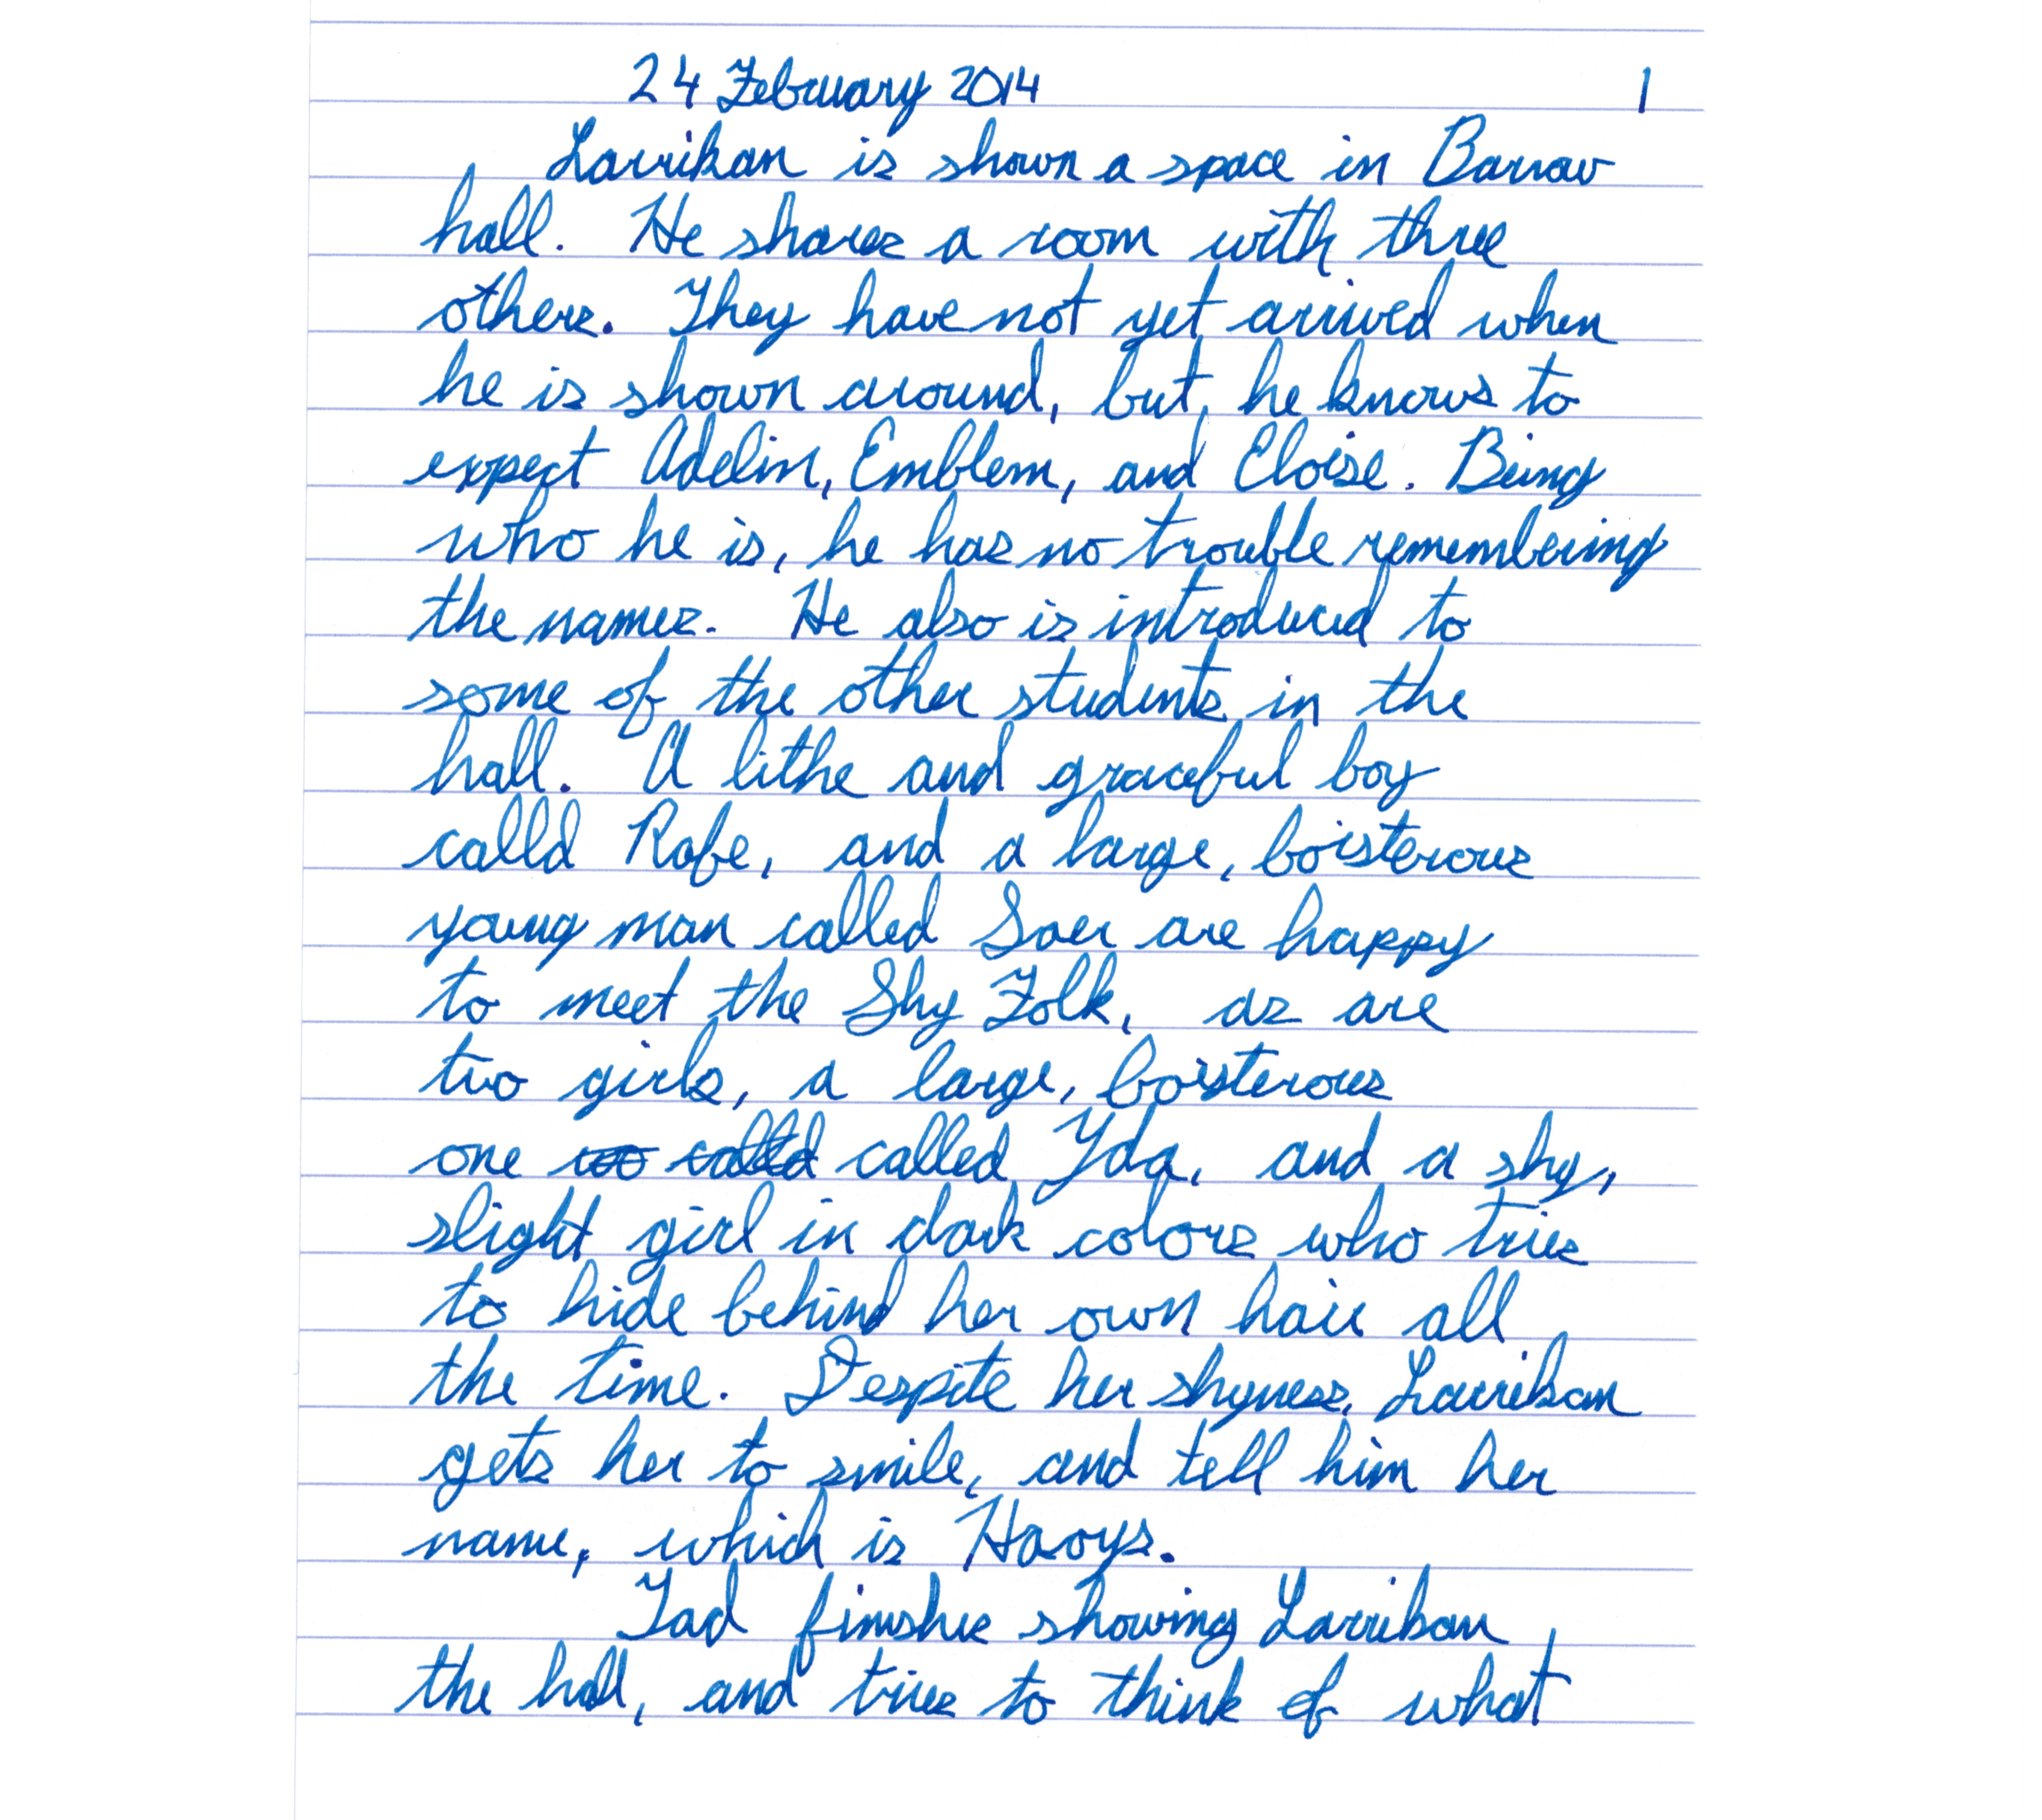 24 February 2014 1
Larrikan is shown a space in Barrow
hall. He shares a room with three
others. They have not yet arrived when
he is shown around, but, he knows to
expect Adelin, Emblem, and Eloise. Being
who he is, he has no trouble remembering
the names. He also is introduced to
some of the other students in the
hall. A lithe and graceful boy
calld Rafe, and a large, boisterous
young man called Soer are happy
to meet the Shy Folk, as are
two girls, a large, boisterous
one called Yda, and a shy,
slight girl in dark colors who tries
to hide behind her own hair all
the time. Despite her shyness, Larrikan
gets her to smile, and tell him her
name, which is Haoys.
Tad finishes showing Larrikan
the hall, and tries to think of what